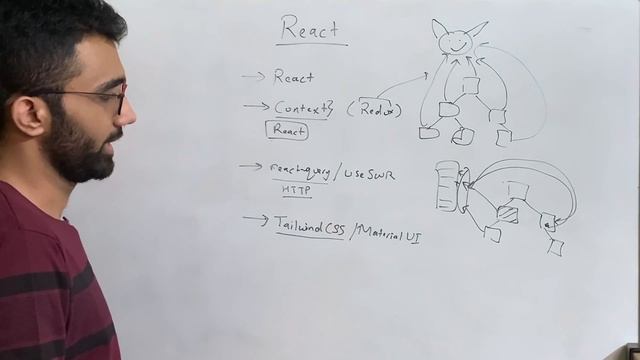 React
→ React
→ Context (Redux)
React
→ react-query / useSWR
HTTP
→ TailwindCSS / Material UI